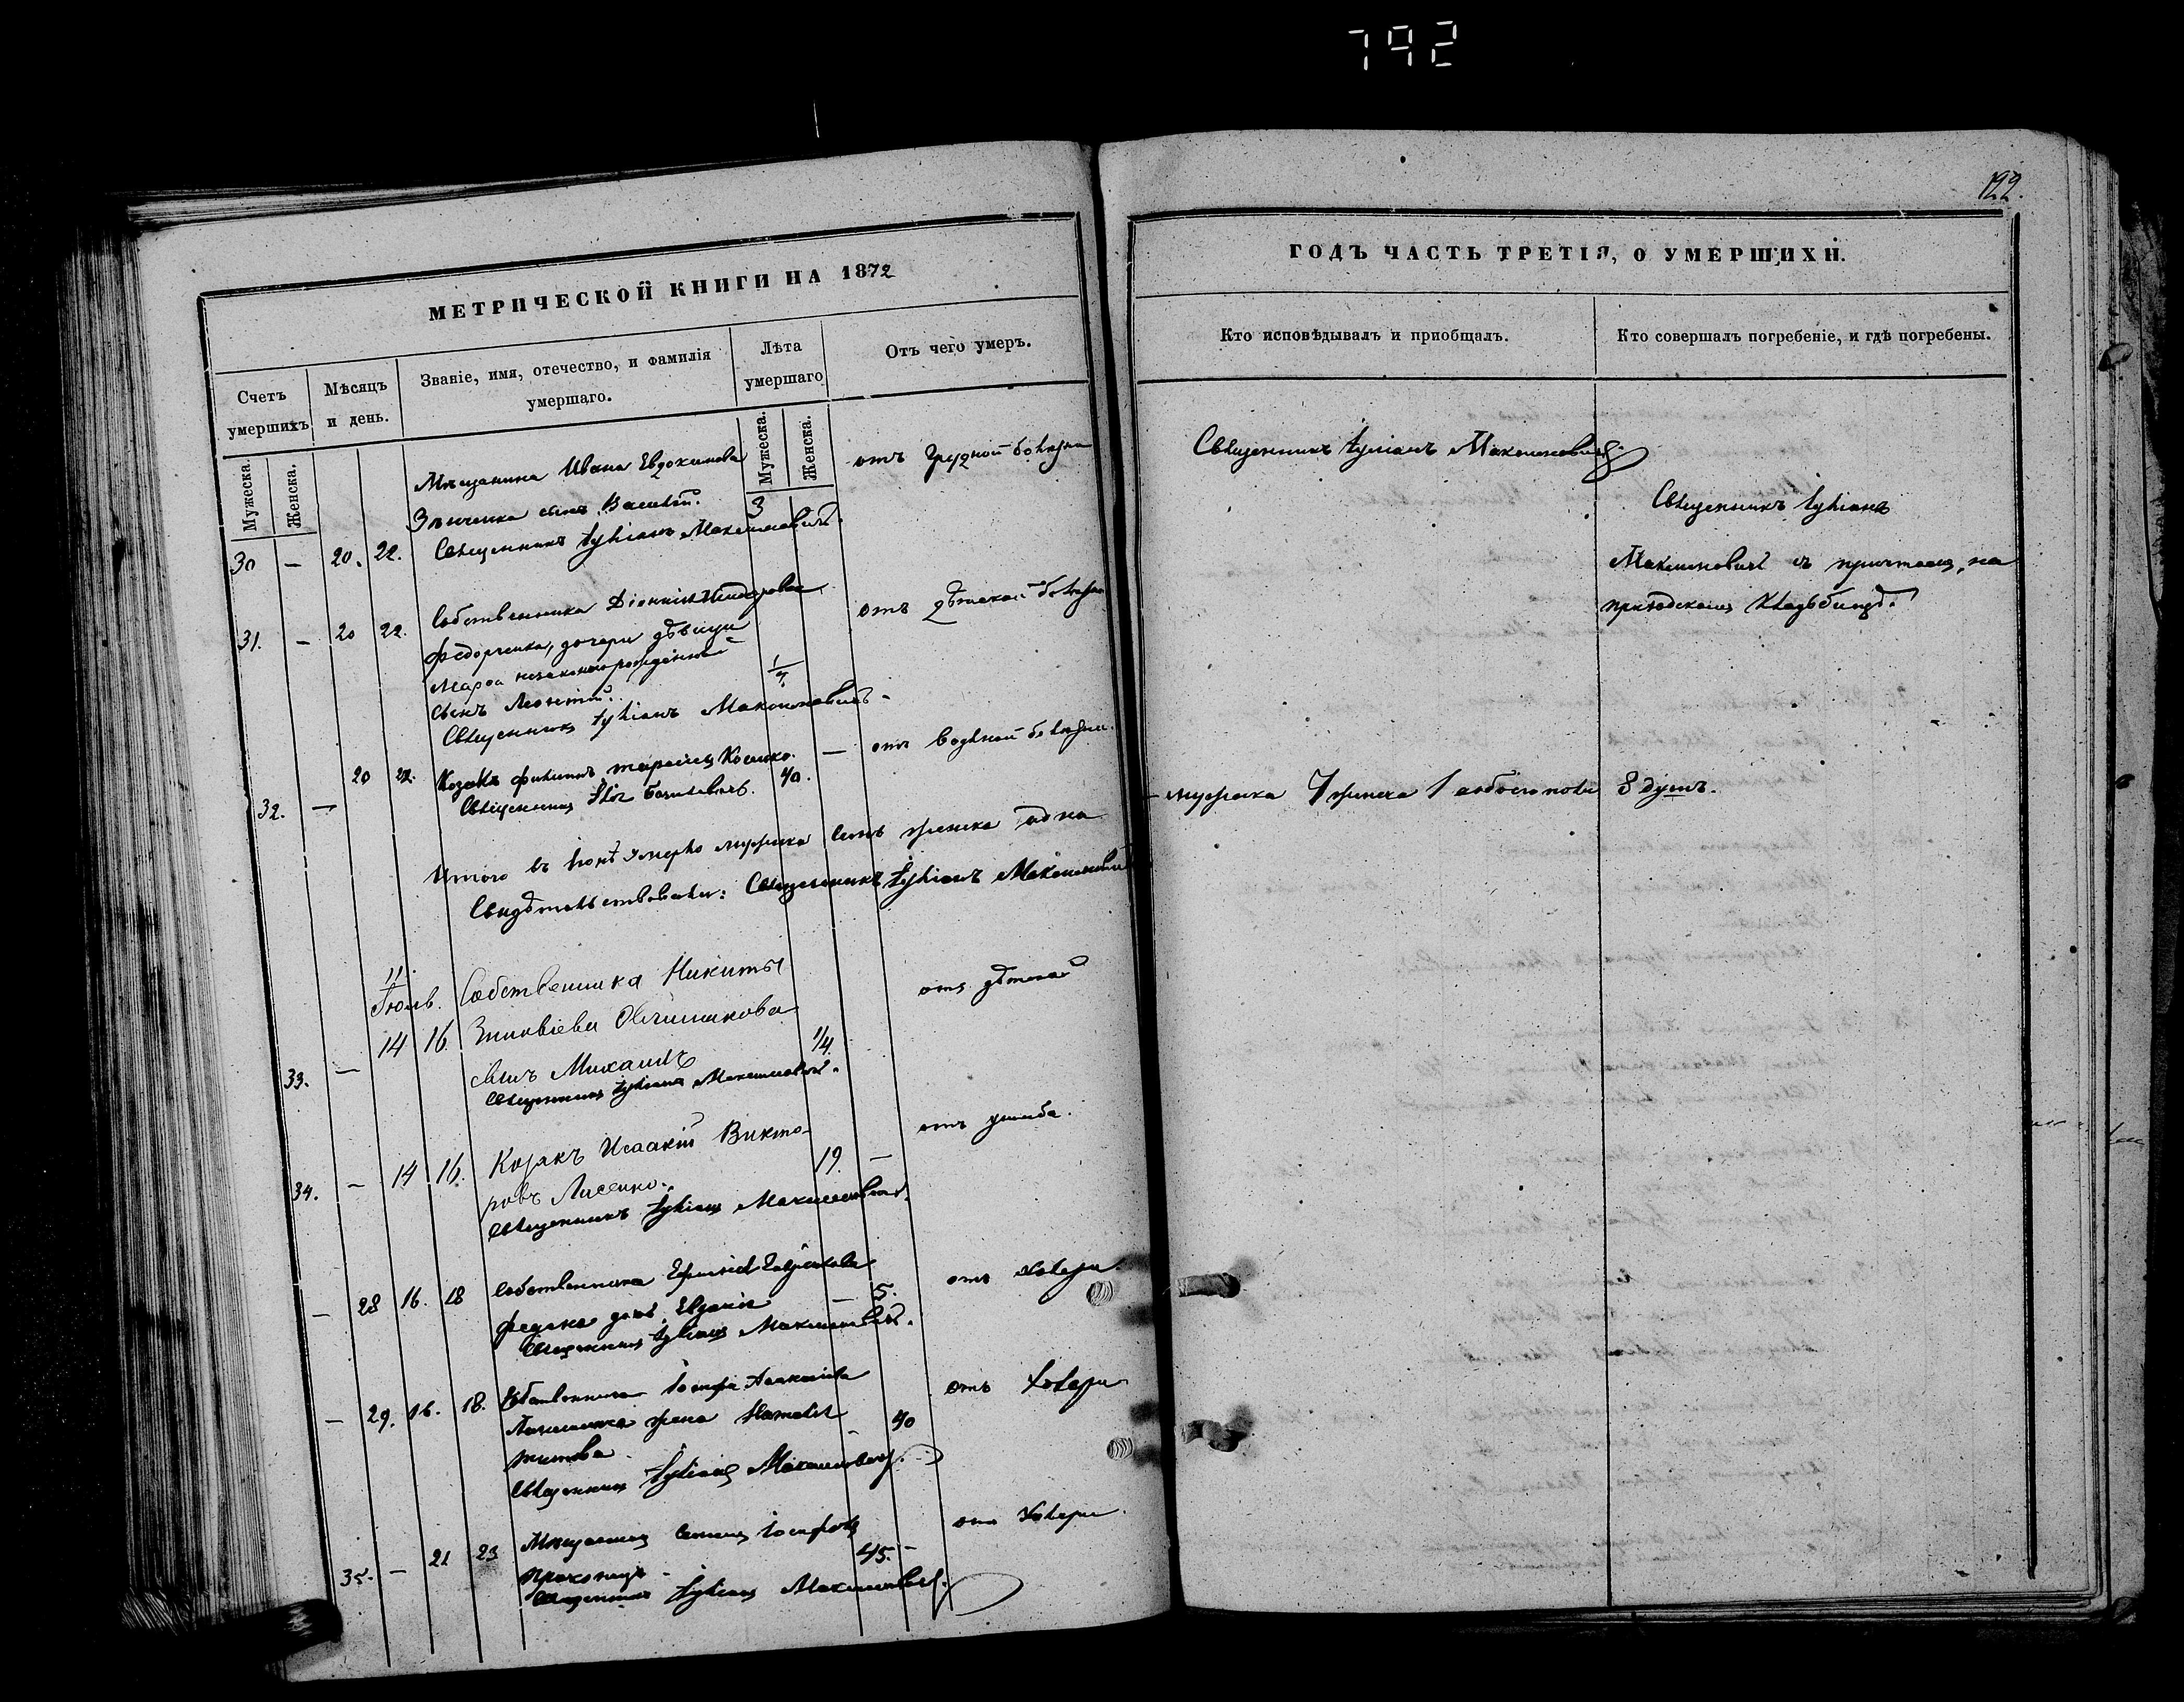 792
122.
МЕТРИЧЕСКОЙ КНИГИ НА 1872
Счетъ умершихъ
Мѣсяцъ и день.
Званіе, имя, отечество, и фамилія умершаго.
Лѣта умершаго
Отъ чего умеръ.
Мужеска.
Женска.
Мужеска.
Женска.
Мѣщанина Ивана Евдокимова
сынъ Василій.
Священникъ Іуліанъ Максимовичъ.
30 — 20. 22. 3
отъ грудной болезни
31. — 20 22.
Собственника Діонисія
Федорченка, дочери дѣвицы
Марѳы незаконнорожденный
сынъ Леонтій.
Священникъ Іуліанъ Максимовичъ
отъ дѣтской болезни
32. — 20 22. Козакъ Филипъ 40. — отъ водяной болезни.
Священникъ
Итого въ Іюнѣ умерло мужеска семъ женска одна
Свидѣтельствовали: Священникъ Іуліанъ Максимовичъ
Іюль.
33. — 14 16. Собственника Никиты
Зиновіева Овчинникова
сынъ Михаилъ 1/4.
Священникъ Іуліанъ Максимовичъ.
отъ дѣтской
34. — 14 16. Козакъ Исаакій Викто-
ровъ Лисенко. 19. —
Священникъ Іуліанъ Максимовичъ.
отъ ушиба.
— 28 16. 18 Собственника
дочь Евдокія — 5.
Священникъ Іуліанъ Максимовичъ.
отъ холеры.
— 29. 16. 18. Собственника Іосифа
жена Наталія 40
Титова
Священникъ Іуліанъ Максимовичъ.
отъ холеры
35. — 21 23 Мѣщанинъ Семенъ Іосифовъ
45. —
Священникъ Іуліанъ Максимовичъ.
отъ холеры.
ГОДЪ ЧАСТЬ ТРЕТІЯ, О УМЕРШИХЪ.
Кто исповѣдывалъ и приобщалъ.
Кто совершалъ погребеніе, и гдѣ погребены.
Священникъ Іуліанъ Максимовичъ
Священникъ Іуліанъ
Максимовичъ съ причтомъ, на
приходскомъ кладбищѣ.
— мужеска 7 женска 1 обоего пола 8 душъ.